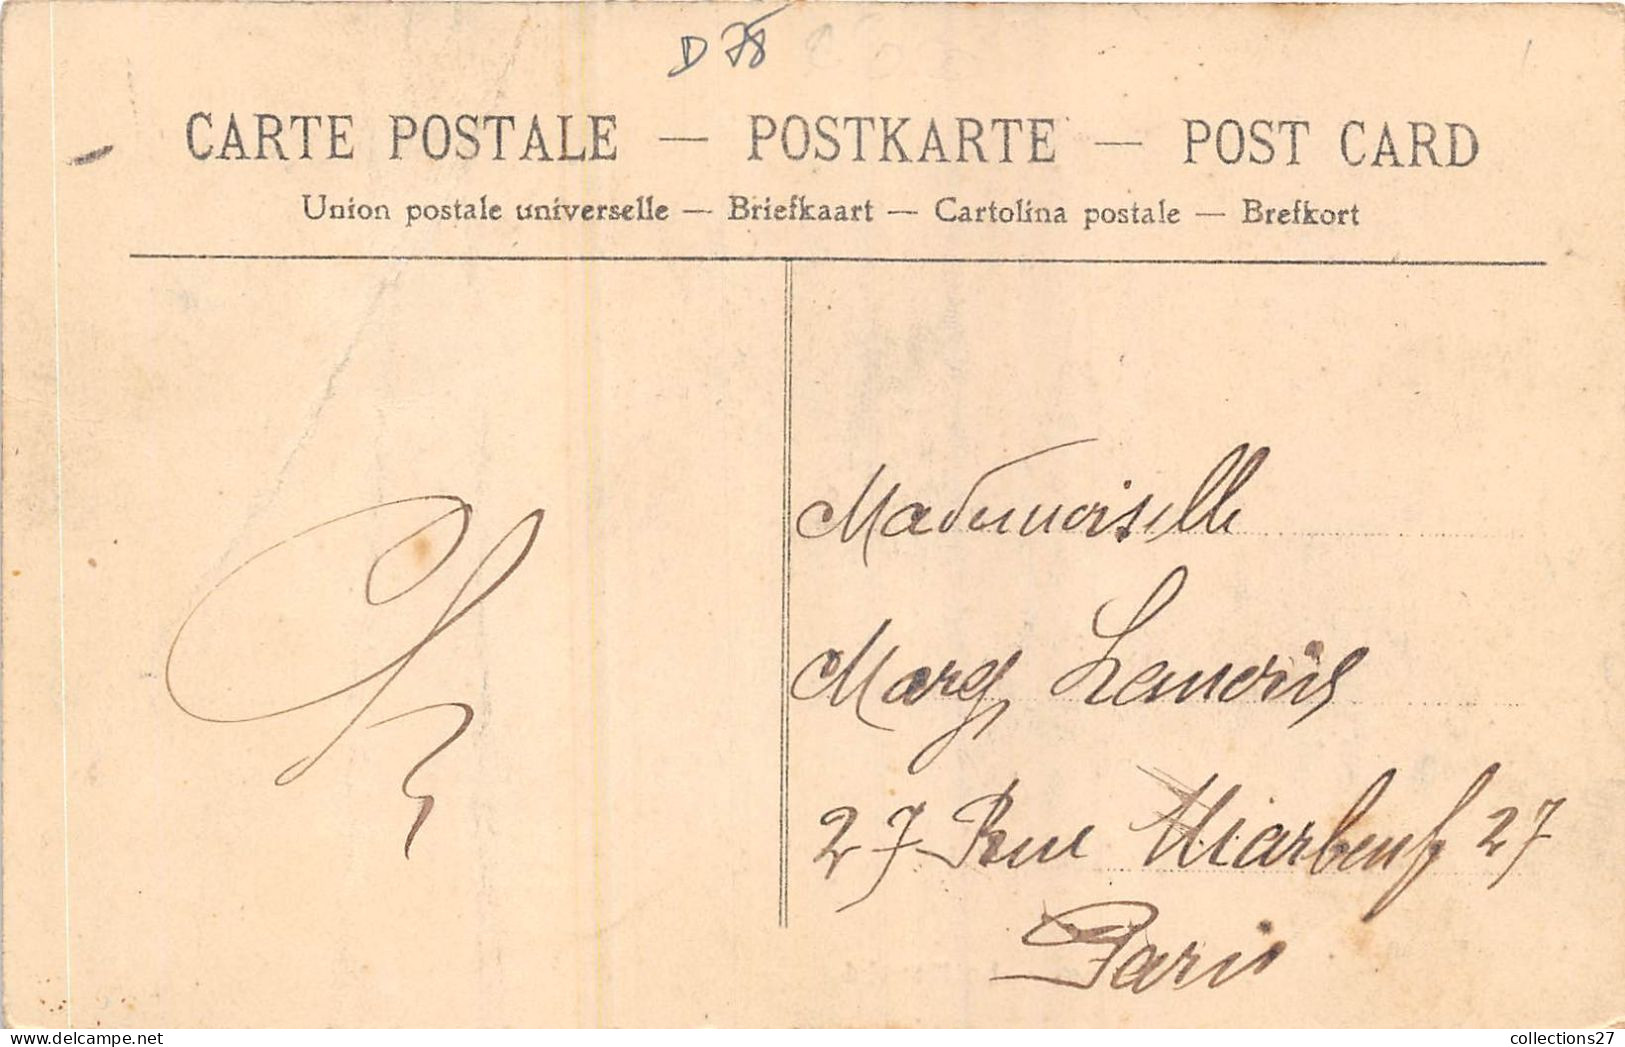 D 78
CARTE POSTALE — POSTKARTE — POST CARD
Union postale universelle — Briefkaart — Cartolina postale — Brefkort
Mademoiselle
Marg
27 Rue Marbeuf 27
Paris
https://www.delcampe.net
collections27